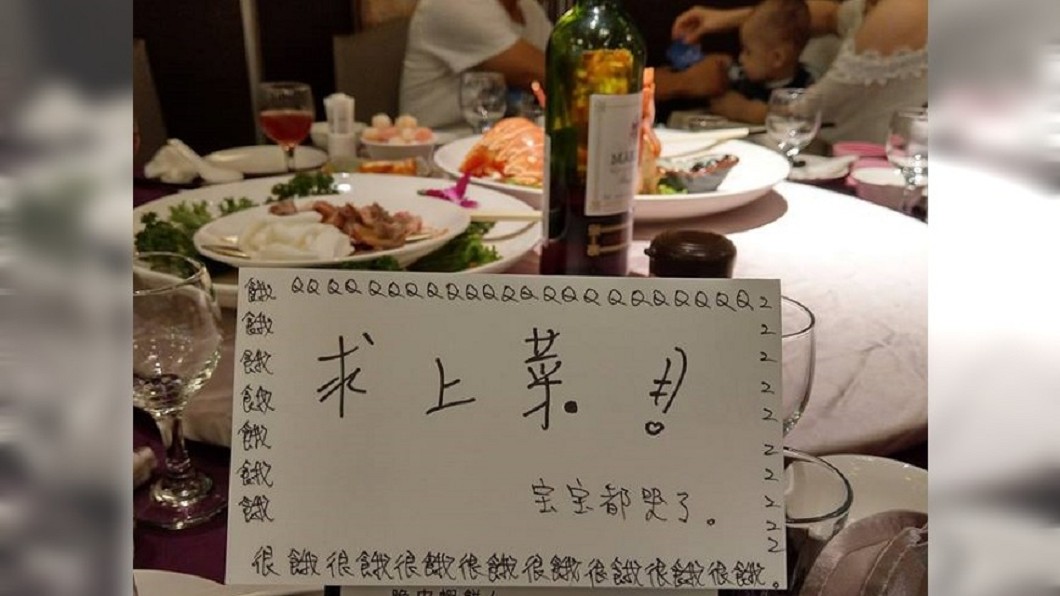 餓 QQQQQQQQQQQQQQQQQQQQQQQ
餓
餓
餓
餓
餓
餓
2
2
2
2
2
2
2
2
2
2
求上菜!!
宝宝都哭了。
很餓很餓很餓很餓很餓很餓很餓很餓。